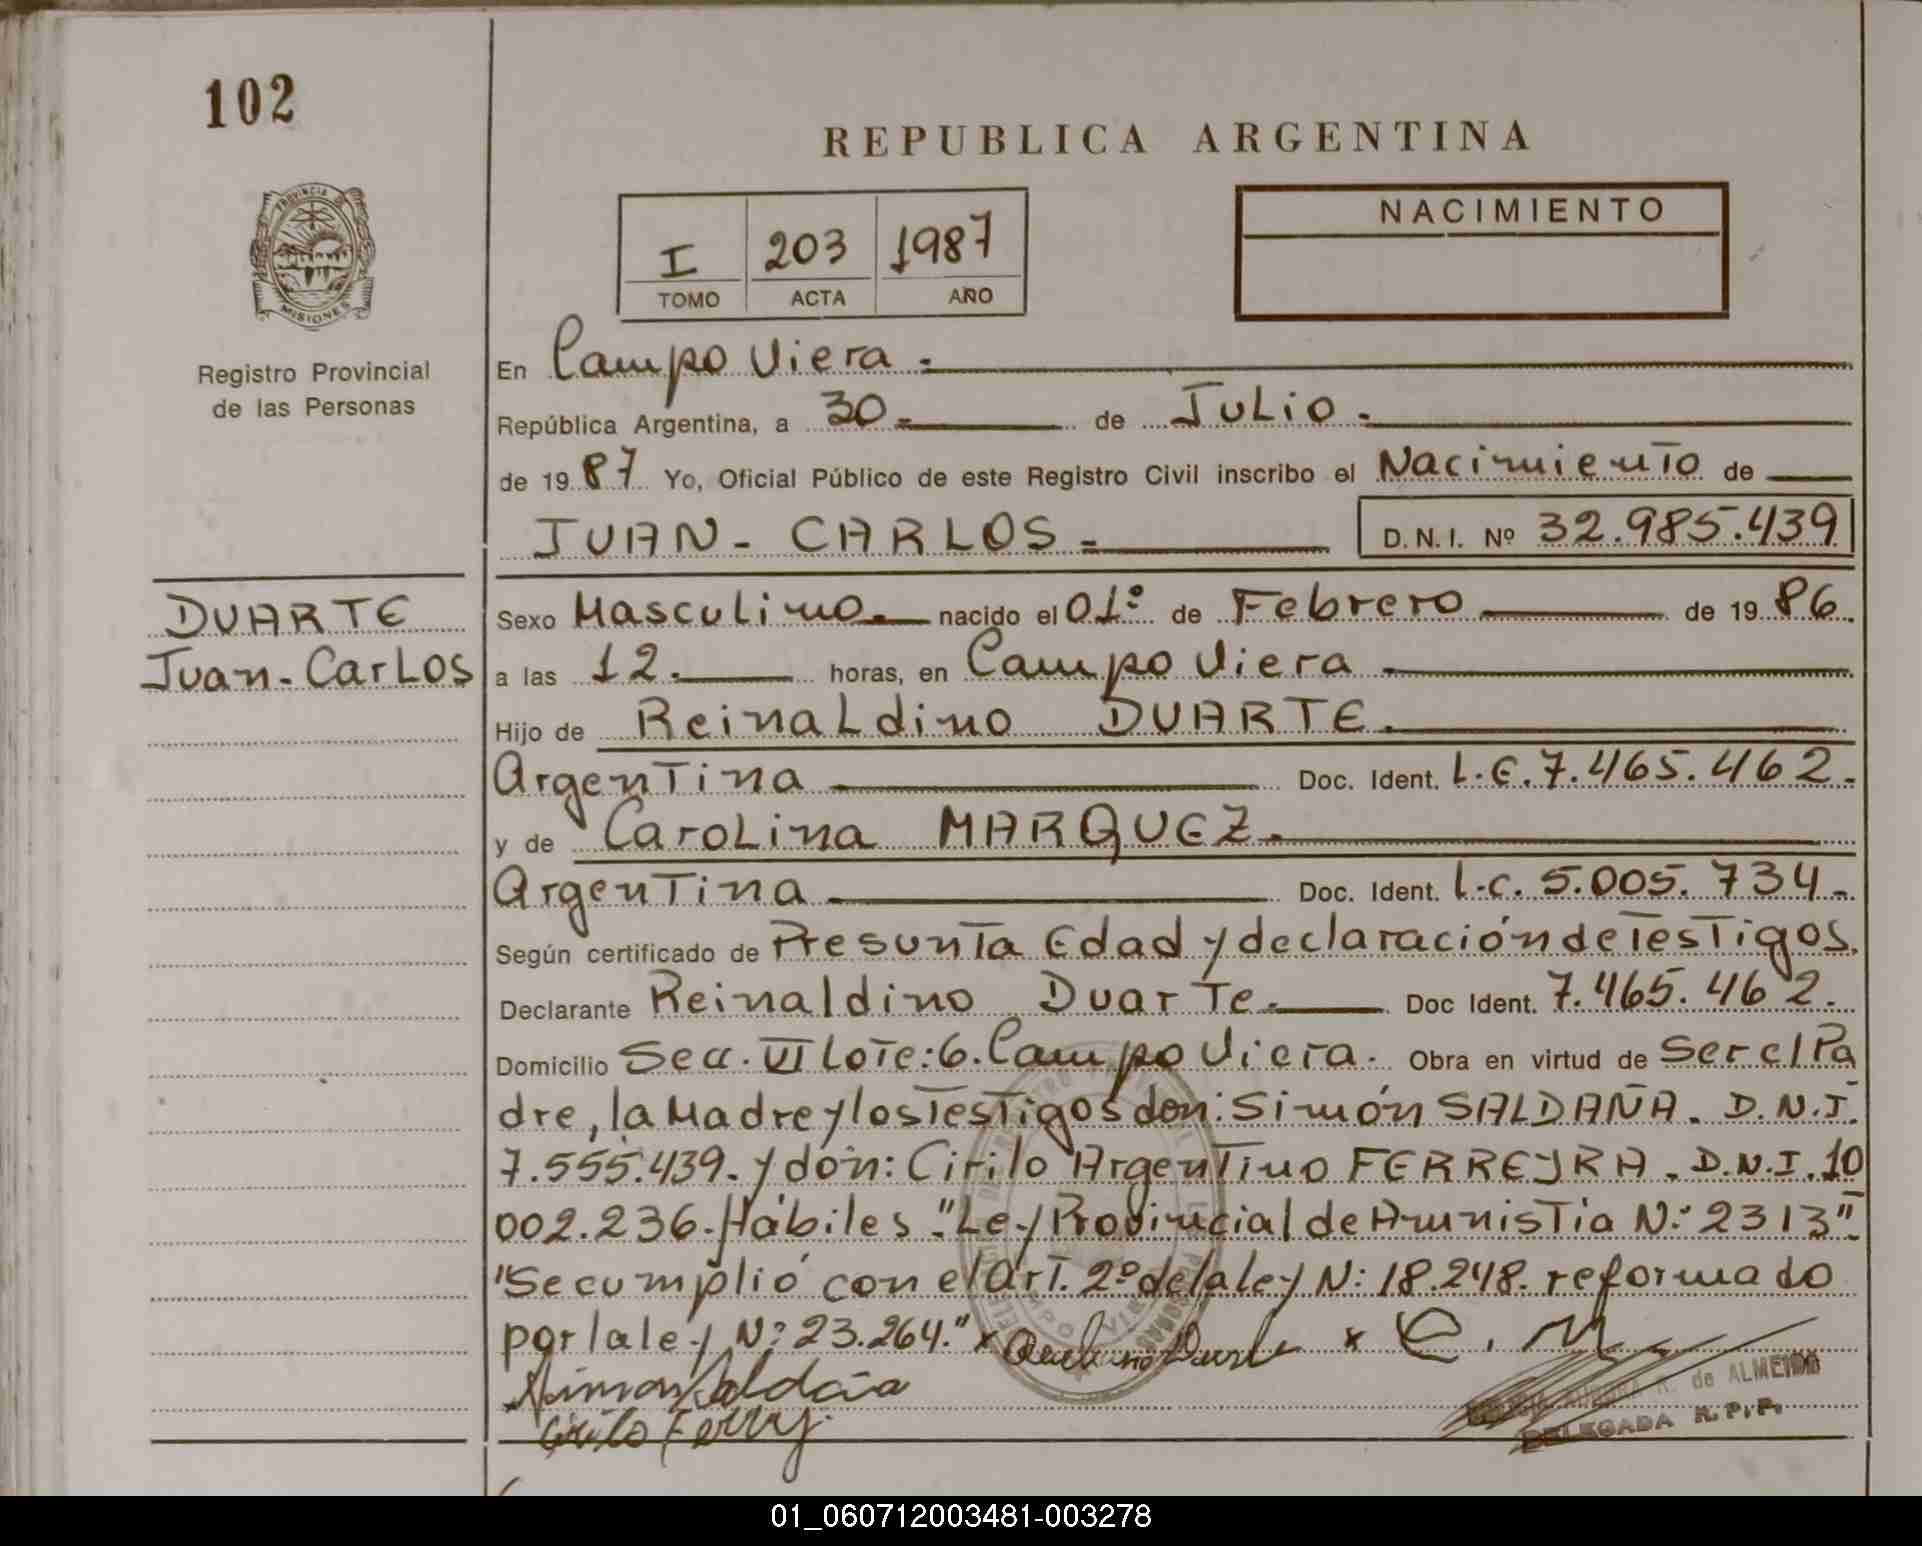 102
REPUBLICA ARGENTINA
NACIMIENTO
I 203 1987
TOMO ACTA AÑO
PROVINCIA DE
MISIONES
Registro Provincial
de las Personas
En Campo Viera.
República Argentina, a 30. de Julio.
de 1987 Yo, Oficial Público de este Registro Civil inscribo el Nacimiento de
JUAN-CARLOS. D.N.I. Nº 32.985.439
DUARTE
Juan-Carlos
Sexo Masculino. nacido el 01º de Febrero de 1986.
a las 12. horas, en Campo Viera
Hijo de Reinaldino DUARTE.
Argentina Doc. Ident. L.E. 7.465.462.
y de Carolina MARQUEZ.
Argentina Doc. Ident. L.C. 5.005.734.
Según certificado de Presunta Edad y declaración de Testigos.
Declarante Reinaldino Duarte. Doc Ident. 7.465.462.
Domicilio Secc. VI Lote: 6. Campo Viera. Obra en virtud de Ser el Pa
dre, la Madre y los Testigos don: Simón SALDAÑA. D.N.I.
7.555.439. y don: Cirilo Argentino FERREYRA. D.N.I. 10
002.236. Hábiles "Ley Provincial de Amnistia N: 2313".
"Se cumplió con el Art. 2º de la ley N: 18.248. reformado
por la ley N: 23.264." x x C. M.
Simon Saldaña
Cirilo Ferry
de ALMEIDA
DELEGADA R.P.P.
01_060712003481-003278